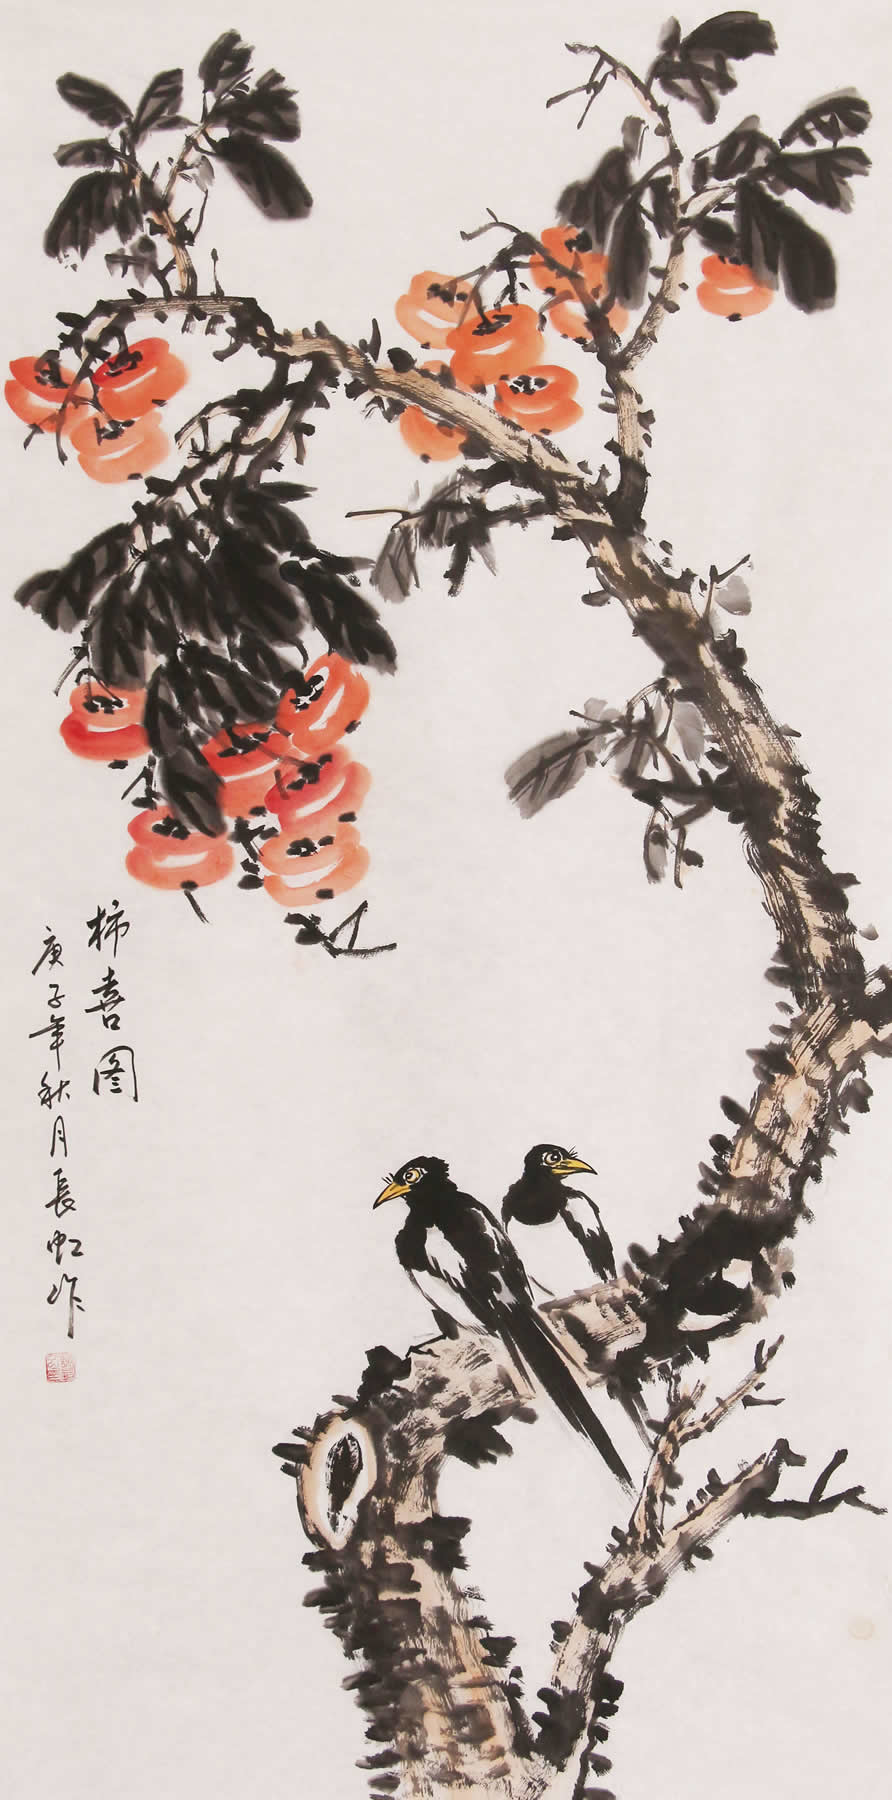 柿喜图
庚子年秋月长虹作